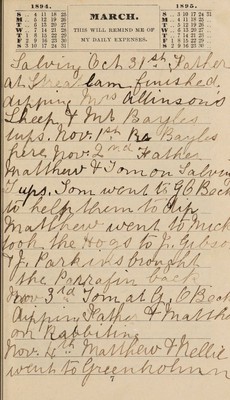 1894. MARCH. 1895.
S 4 11 18 25
M 5 12 19 26
T 6 13 20 27
W 7 14 21 28
T 1 8 15 22 29
F 2 9 16 23 30
S 3 10 17 24 31
THIS WILL REMIND ME OF
MY DAILY EXPENSES.
S 3 10 17 24 31
M 4 11 18 25
T 5 12 19 26
W 6 13 20 27
T 7 14 21 28
F 1 8 15 22 29
S 2 9 16 23 30
Salving Oct. 31st. Father
at lam finished
dipping Mrs Allinson's
Sheep & Mr Bayles
tups. Nov. 1st Bayles
here Nov. 2nd Father
Matthew & Tom on Salving
Tups. Tom went to G C Bec
to help them to dip
Matthew went to Mick
took the Hogs to J. Gibso
T J. Parkins brought
the Parrafin back
Nov 3rd Tom at G. C Beck
dipping Father & Matthe
on Rabbiting
Nov. 4th Matthew & Nellie
went to Greenholm
7